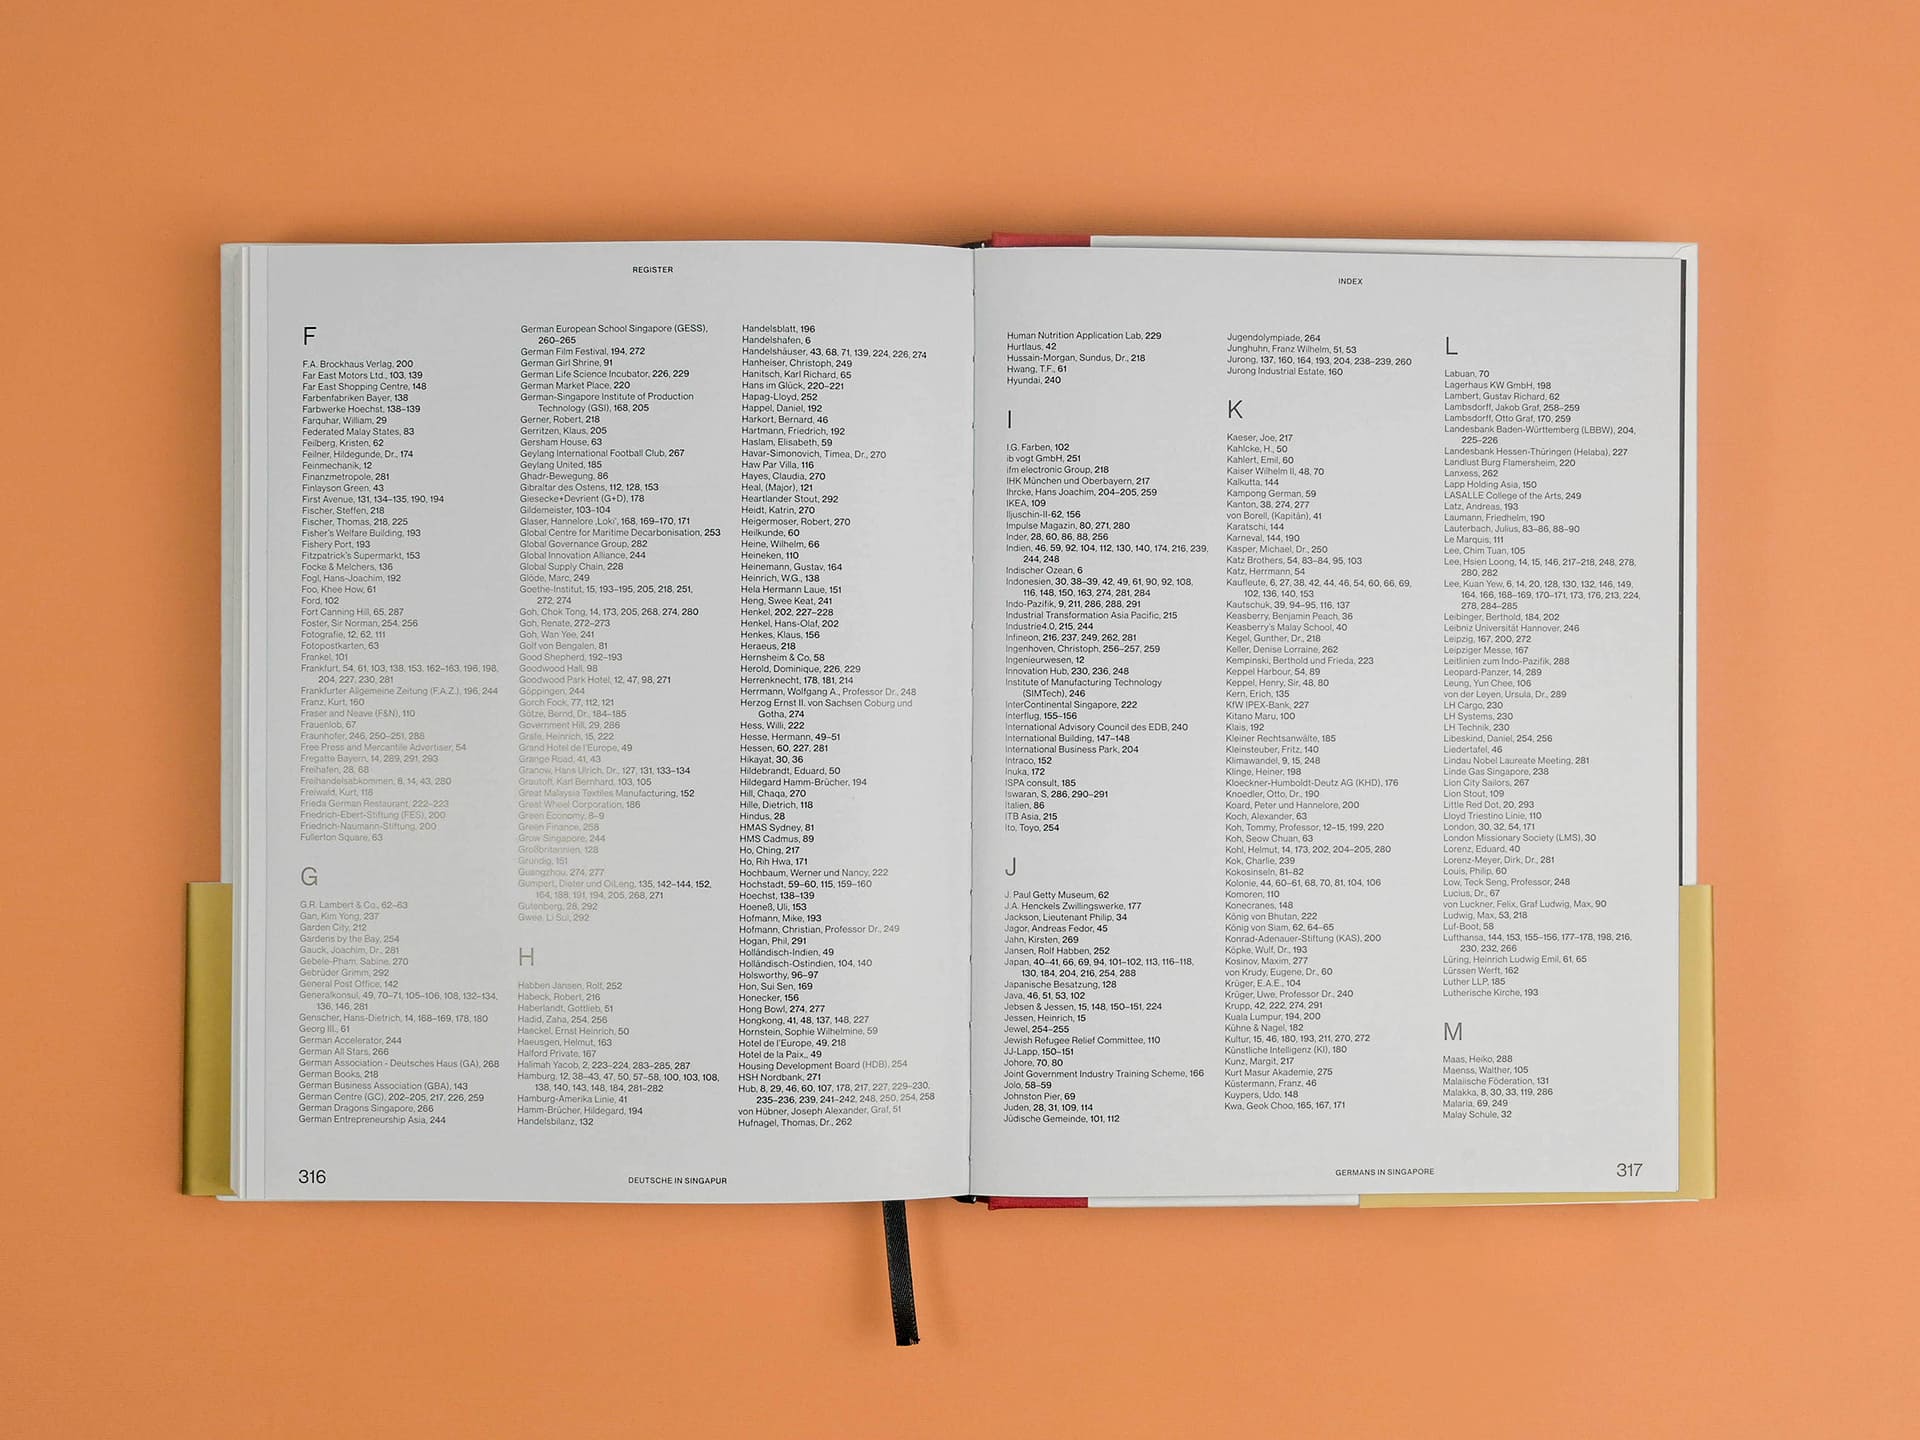 REGISTER
F
F.A. Brockhaus Verlag, 200
Far East Motors Ltd., 103, 139
Far East Shopping Centre, 148
Farbenfabriken Bayer, 138
Farbwerke Hoechst, 138–139
Farquhar, William, 29
Federated Malay States, 83
Feilberg, Kristen, 62
Feilner, Hildegunde, Dr., 174
Feinmechanik, 12
Finanzmetropole, 281
Finlayson Green, 43
First Avenue, 131, 134–135, 190, 194
Fischer, Steffen, 218
Fischer, Thomas, 218, 225
Fisher's Welfare Building, 193
Fishery Port, 193
Fitzpatrick's Supermarkt, 153
Focke & Melchers, 136
Fogl, Hans-Joachim, 192
Foo, Khee How, 61
Ford, 102
Fort Canning Hill, 65, 287
Foster, Sir Norman, 254, 256
Fotografie, 12, 62, 111
Fotopostkarten, 63
Frankel, 101
Frankfurt, 54, 61, 103, 138, 153, 162–163, 196, 198,
204, 227, 230, 281
Frankfurter Allgemeine Zeitung (F.A.Z.), 196, 244
Franz, Kurt, 160
Fraser and Neave (F&N), 110
Frauenlob, 67
Fraunhofer, 246, 250–251, 288
Free Press and Mercantile Advertiser, 54
Fregatte Bayern, 14, 289, 291, 293
Freihafen, 28, 68
Freihandelsabkommen, 8, 14, 43, 280
Freiwald, Kurt, 118
Frieda German Restaurant, 222–223
Friedrich-Ebert-Stiftung (FES), 200
Friedrich-Naumann-Stiftung, 200
Fullerton Square, 63
G
G.R. Lambert & Co., 62–63
Gan, Kim Yong, 237
Garden City, 212
Gardens by the Bay, 254
Gauck, Joachim, Dr., 281
Gebele-Pham, Sabine, 270
Gebrüder Grimm, 292
General Post Office, 142
Generalkonsul, 49, 70–71, 105–106, 108, 132–134,
136, 146, 281
Genscher, Hans-Dietrich, 14, 168–169, 178, 180
Georg III., 61
German Accelerator, 244
German All Stars, 266
German Association - Deutsches Haus (GA), 268
German Books, 218
German Business Association (GBA), 143
German Centre (GC), 202–205, 217, 226, 259
German Dragons Singapore, 266
German Entrepreneurship Asia, 244
German European School Singapore (GESS),
260–265
German Film Festival, 194, 272
German Girl Shrine, 91
German Life Science Incubator, 226, 229
German Market Place, 220
German-Singapore Institute of Production
Technology (GSI), 168, 205
Gerner, Robert, 218
Gerritzen, Klaus, 205
Gersham House, 63
Geylang International Football Club, 267
Geylang United, 185
Ghadr-Bewegung, 86
Gibraltar des Ostens, 112, 128, 153
Giesecke+Devrient (G+D), 178
Gildemeister, 103–104
Glaser, Hannelore ‚Loki', 168, 169–170, 171
Global Centre for Maritime Decarbonisation, 253
Global Governance Group, 282
Global Innovation Alliance, 244
Global Supply Chain, 228
Glöde, Marc, 249
Goethe-Institut, 15, 193–195, 205, 218, 251,
272, 274
Goh, Chok Tong, 14, 173, 205, 268, 274, 280
Goh, Renate, 272–273
Goh, Wan Yee, 241
Golf von Bengalen, 81
Good Shepherd, 192–193
Goodwood Hall, 98
Goodwood Park Hotel, 12, 47, 98, 271
Göppingen, 244
Gorch Fock, 77, 112, 121
Götze, Bernd, Dr., 184–185
Government Hill, 29, 286
Grafe, Heinrich, 15, 222
Grand Hotel de l'Europe, 49
Grange Road, 41, 43
Granow, Hans Ulrich, Dr., 127, 131, 133–134
Grautoft, Karl Bernhard, 103, 105
Great Malaysia Textiles Manufacturing, 152
Great Wheel Corporation, 186
Green Economy, 8–9
Green Finance, 258
Grow Singapore, 244
Großbritannien, 128
Grundig, 151
Guangzhou, 274, 277
Gumpert, Dieter und OiLeng, 135, 142–144, 152,
164, 188, 191, 194, 205, 268, 271
Gutenberg, 28, 292
Gwee, Li Sui, 292
H
Habben Jansen, Rolf, 252
Habeck, Robert, 216
Haberlandt, Gottlieb, 51
Hadid, Zaha, 254, 256
Haeckel, Ernst Heinrich, 50
Haeusgen, Helmut, 163
Halford Private, 167
Halimah Yacob, 2, 223–224, 283–285, 287
Hamburg, 12, 38–43, 47, 50, 57–58, 100, 103, 108,
138, 140, 143, 148, 184, 281–282
Hamburg-Amerika Linie, 41
Hamm-Brücher, Hildegard, 194
Handelsbilanz, 132
Handelsblatt, 196
Handelshafen, 6
Handelshäuser, 43, 68, 71, 139, 224, 226, 274
Hanheiser, Christoph, 249
Hanitsch, Karl Richard, 65
Hans im Glück, 220–221
Hapag-Lloyd, 252
Happel, Daniel, 192
Harkort, Bernard, 46
Hartmann, Friedrich, 192
Haslam, Elisabeth, 59
Havar-Simonovich, Timea, Dr., 270
Haw Par Villa, 116
Hayes, Claudia, 270
Heal, (Major), 121
Heartlander Stout, 292
Heidt, Katrin, 270
Heigermoser, Robert, 270
Heilkunde, 60
Heine, Wilhelm, 66
Heineken, 110
Heinemann, Gustav, 164
Heinrich, W.G., 138
Hela Hermann Laue, 151
Heng, Swee Keat, 241
Henkel, 202, 227–228
Henkel, Hans-Olaf, 202
Henkes, Klaus, 156
Heraeus, 218
Hernsheim & Co, 58
Herold, Dominique, 226, 229
Herrenknecht, 178, 181, 214
Herrmann, Wolfgang A., Professor Dr., 248
Herzog Ernst II. von Sachsen Coburg und
Gotha, 274
Hess, Willi, 222
Hesse, Hermann, 49–51
Hessen, 60, 227, 281
Hikayat, 30, 36
Hildebrandt, Eduard, 50
Hildegard Hamm-Brücher, 194
Hill, Chaqa, 270
Hille, Dietrich, 118
Hindus, 28
HMAS Sydney, 81
HMS Cadmus, 89
Ho, Ching, 217
Ho, Rih Hwa, 171
Hochbaum, Werner und Nancy, 222
Hochstadt, 59–60, 115, 159–160
Hoechst, 138–139
Hoeneß, Uli, 153
Hofmann, Mike, 193
Hofmann, Christian, Professor Dr., 249
Hogan, Phil, 291
Holländisch-Indien, 49
Holländisch-Ostindien, 104, 140
Holsworthy, 96–97
Hon, Sui Sen, 169
Honecker, 156
Hong Bowl, 274, 277
Hongkong, 41, 48, 137, 148, 227
Hornstein, Sophie Wilhelmine, 59
Hotel de l'Europe, 49, 218
Hotel de la Paix,, 49
Housing Development Board (HDB), 254
HSH Nordbank, 271
Hub, 8, 29, 46, 60, 107, 178, 217, 227, 229–230,
235–236, 239, 241–242, 248, 250, 254, 258
von Hübner, Joseph Alexander, Graf, 51
Hufnagel, Thomas, Dr., 262
316
DEUTSCHE IN SINGAPUR
INDEX
Human Nutrition Application Lab, 229
Hurtlaus, 42
Hussain-Morgan, Sundus, Dr., 218
Hwang, T.F., 61
Hyundai, 240
I
I.G. Farben, 102
ib vogt GmbH, 251
ifm electronic Group, 218
IHK München und Oberbayern, 217
Ihrcke, Hans Joachim, 204–205, 259
IKEA, 109
Iljuschin-II-62, 156
Impulse Magazin, 80, 271, 280
Inder, 28, 60, 86, 88, 256
Indien, 46, 59, 92, 104, 112, 130, 140, 174, 216, 239,
244, 248
Indischer Ozean, 6
Indonesien, 30, 38–39, 42, 49, 61, 90, 92, 108,
116, 148, 150, 163, 274, 281, 284
Indo-Pazifik, 9, 211, 286, 288, 291
Industrial Transformation Asia Pacific, 215
Industrie4.0, 215, 244
Infineon, 216, 237, 249, 262, 281
Ingenhoven, Christoph, 256–257, 259
Ingenieurwesen, 12
Innovation Hub, 230, 236, 248
Institute of Manufacturing Technology
(SIMTech), 246
InterContinental Singapore, 222
Interflug, 155–156
International Advisory Council des EDB, 240
International Building, 147–148
International Business Park, 204
Intraco, 152
Inuka, 172
ISPA consult, 185
Iswaran, S, 286, 290–291
Italien, 86
ITB Asia, 215
Ito, Toyo, 254
J
J. Paul Getty Museum, 62
J.A. Henckels Zwillingswerke, 177
Jackson, Lieutenant Philip, 34
Jagor, Andreas Fedor, 45
Jahn, Kirsten, 269
Jansen, Rolf Habben, 252
Japan, 40–41, 66, 69, 94, 101–102, 113, 116–118,
130, 184, 204, 216, 254, 288
Japanische Besatzung, 128
Java, 46, 51, 53, 102
Jebsen & Jessen, 15, 148, 150–151, 224
Jessen, Heinrich, 15
Jewel, 254–255
Jewish Refugee Relief Committee, 110
JJ-Lapp, 150–151
Johore, 70, 80
Joint Government Industry Training Scheme, 166
Jolo, 58–59
Johnston Pier, 69
Juden, 28, 31, 109, 114
Jüdische Gemeinde, 101, 112
Jugendolympiade, 264
Junghuhn, Franz Wilhelm, 51, 53
Jurong, 137, 160, 164, 193, 204, 238–239, 260
Jurong Industrial Estate, 160
K
Kaeser, Joe, 217
Kahlcke, H., 50
Kahlert, Emil, 60
Kaiser Wilhelm II, 48, 70
Kalkutta, 144
Kampong German, 59
Kanton, 38, 274, 277
von Borell, (Kapitän), 41
Karatschi, 144
Karneval, 144, 190
Kasper, Michael, Dr., 250
Katz Brothers, 54, 83–84, 95, 103
Katz, Herrmann, 54
Kaufleute, 6, 27, 38, 42, 44, 46, 54, 60, 66, 69,
102, 136, 140, 153
Kautschuk, 39, 94–95, 116, 137
Keasberry, Benjamin Peach, 36
Keasberry's Malay School, 40
Kegel, Gunther, Dr., 218
Keller, Denise Lorraine, 262
Kempinski, Berthold und Frieda, 223
Keppel Harbour, 54, 89
Keppel, Henry, Sir, 48, 80
Kern, Erich, 135
KfW IPEX-Bank, 227
Kitano Maru, 100
Klais, 192
Kleiner Rechtsanwälte, 185
Kleinsteuber, Fritz, 140
Klimawandel, 9, 15, 248
Klinge, Heiner, 198
Kloeckner-Humboldt-Deutz AG (KHD), 176
Knoedler, Otto, Dr., 190
Koard, Peter und Hannelore, 200
Koch, Alexander, 63
Koh, Tommy, Professor, 12–15, 199, 220
Koh, Seow Chuan, 63
Kohl, Helmut, 14, 173, 202, 204–205, 280
Kok, Charlie, 239
Kokosinseln, 81–82
Kolonie, 44, 60–61, 68, 70, 81, 104, 106
Komoren, 110
Konecranes, 148
König von Bhutan, 222
König von Siam, 62, 64–65
Konrad-Adenauer-Stiftung (KAS), 200
Köpke, Wulf, Dr., 193
Kosinov, Maxim, 277
von Krudy, Eugene, Dr., 60
Krüger, E.A.E., 104
Krüger, Uwe, Professor Dr., 240
Krupp, 42, 222, 274, 291
Kuala Lumpur, 194, 200
Kühne & Nagel, 182
Kultur, 15, 46, 180, 193, 211, 270, 272
Künstliche Intelligenz (KI), 180
Kunz, Margit, 217
Kurt Masur Akademie, 275
Küstermann, Franz, 46
Kuypers, Udo, 148
Kwa, Geok Choo, 165, 167, 171
L
Labuan, 70
Lagerhaus KW GmbH, 198
Lambert, Gustav Richard, 62
Lambsdorff, Jakob Graf, 258–259
Lambsdorff, Otto Graf, 170, 259
Landesbank Baden-Württemberg (LBBW), 204,
225–226
Landesbank Hessen-Thüringen (Helaba), 227
Landlust Burg Flamersheim, 220
Lanxess, 262
Lapp Holding Asia, 150
LASALLE College of the Arts, 249
Latz, Andreas, 193
Laumann, Friedhelm, 190
Lauterbach, Julius, 83–86, 88–90
Le Marquis, 111
Lee, Chim Tuan, 105
Lee, Hsien Loong, 14, 15, 146, 217–218, 248, 278,
280, 282
Lee, Kuan Yew, 6, 14, 20, 128, 130, 132, 146, 149,
164, 166, 168–169, 170–171, 173, 176, 213, 224,
278, 284–285
Leibinger, Berthold, 184, 202
Leibniz Universität Hannover, 246
Leipzig, 167, 200, 272
Leipziger Messe, 167
Leitlinien zum Indo-Pazifik, 288
Leopard-Panzer, 14, 289
Leung, Yun Chee, 106
von der Leyen, Ursula, Dr., 289
LH Cargo, 230
LH Systems, 230
LH Technik, 230
Libeskind, Daniel, 254, 256
Liedertafel, 46
Lindau Nobel Laureate Meeting, 281
Linde Gas Singapore, 238
Lion City Sailors, 267
Lion Stout, 109
Little Red Dot, 20, 293
Lloyd Triestino Linie, 110
London, 30, 32, 54, 171
London Missionary Society (LMS), 30
Lorenz, Eduard, 40
Lorenz-Meyer, Dirk, Dr., 281
Louis, Philip, 60
Low, Teck Seng, Professor, 248
Lucius, Dr., 67
von Luckner, Felix, Graf Ludwig, Max, 90
Ludwig, Max, 53, 218
Luf-Boot, 58
Lufthansa, 144, 153, 155–156, 177–178, 198, 216,
230, 232, 266
Lüring, Heinrich Ludwig Emil, 61, 65
Lürssen Werft, 162
Luther LLP, 185
Lutherische Kirche, 193
M
Maas, Heiko, 288
Maenss, Walther, 105
Malaiische Föderation, 131
Malakka, 8, 30, 33, 119, 286
Malaria, 69, 249
Malay Schule, 32
GERMANS IN SINGAPORE
317